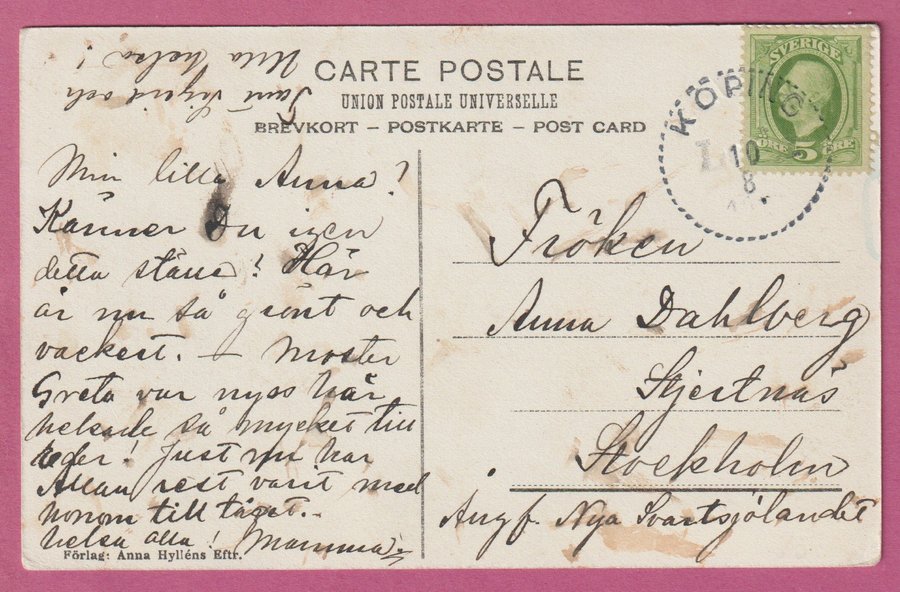 Tant Sigrid och
Ulla helsa!
CARTE POSTALE
UNION POSTALE UNIVERSELLE
BREVKORT – POSTKARTE – POST CARD
SVERIGE
ÖRE 5 ÖRE
KÖPING
10
8
Min lilla Anna!
Känner Du igen
detta ställe? Här
är nu så grönt och
vackert. – Moster
Greta var nyss här
helsade så mycket till
eder! Just nu har
Allan rest varit med
honom till tåget.
helsa alla! Mamma.
Fröken
Anna Dahlberg
Stjertnäs
Stockholm
Ångf. Nya Svartsjölandet
Förlag: Anna Hylléns Eftr.